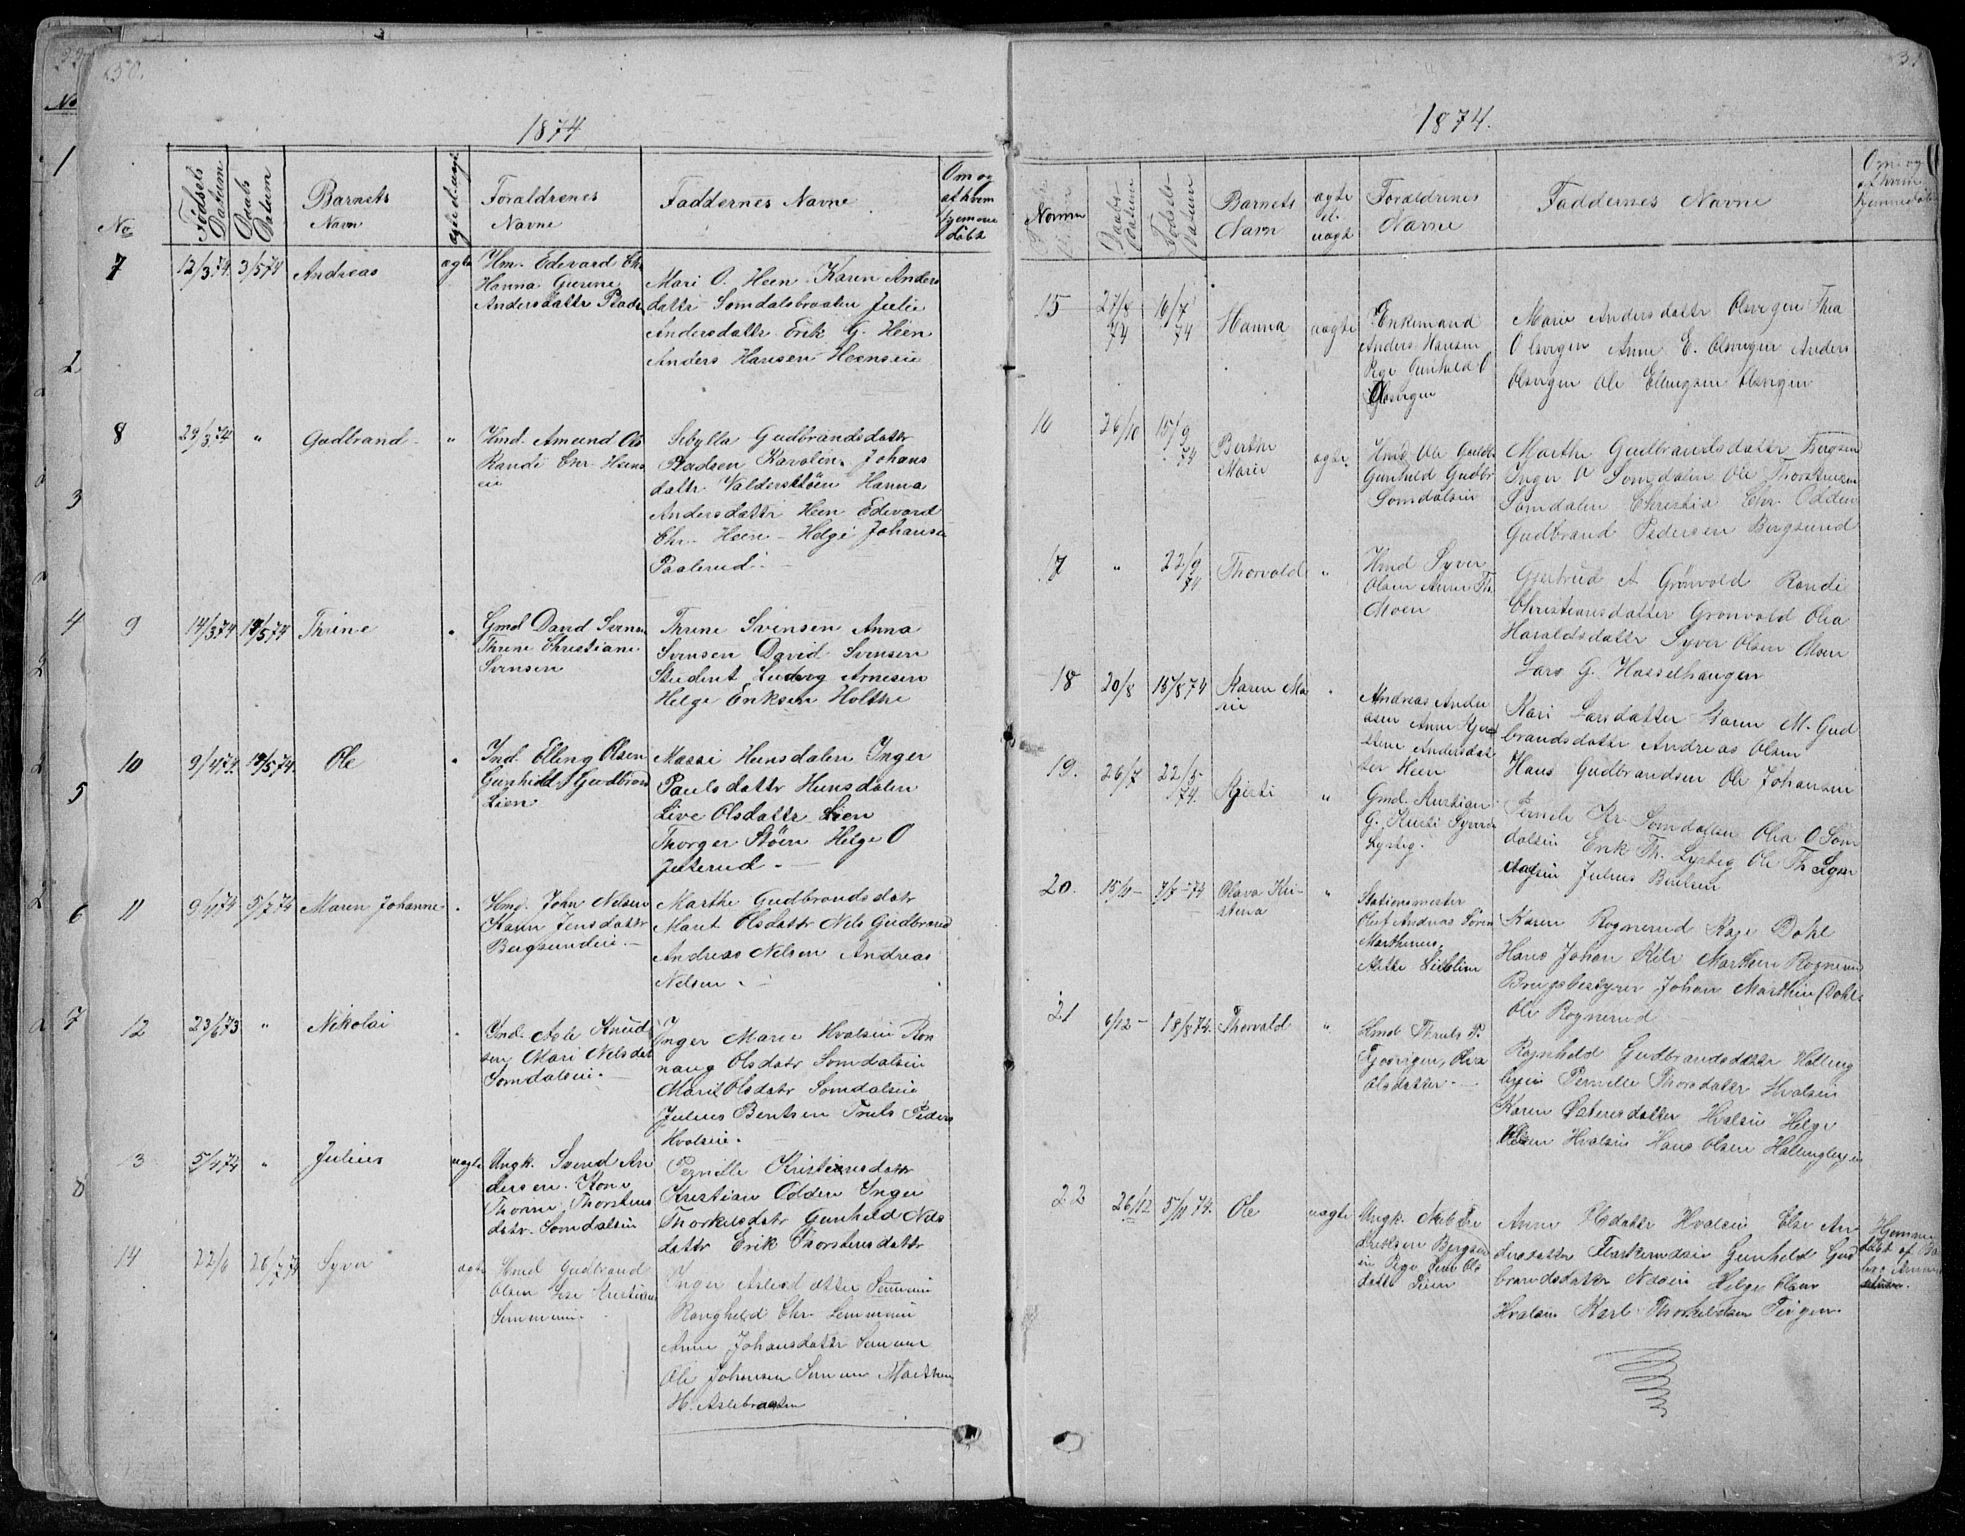 30.
1874
No
Fødsels Datum
Daabs Datum
Barnets Navn
ægte el. uægte
Foraldrenes Navne
Faddernes Navne
Om og af hvem hjemme døbt
7
12/3 74
3/5 74
Andreas
ægte
Hm. Edevard Chr
Hanna Gurine
Andersdatte
Mari O. Heen Karen Anders
datte Somdalsbraaten Julie
Andersdatte Erik G. Heen
Anders Hansen Heenseie
8
29/3 74
"
Gudbrand
"
Hmd. Amund Ols
Randi Chr. Heens
eie
Sibylla Gudbrandsdatr
Karolin Johans
datr. Hanna
Andersdattr Heen Edevard
Chr. Heen - Helge Johanse
Paalerud
9
14/3 74
14/5 74
Thrine
"
Gmd David Svense
Thrine Christiane
Svensen
Thrine Svensen Anna
Svensen David Svensen
Student Ludvig Arnesen
Helge Eriksen Holthe
10
9/4 74
14/5 74
Ole
"
Ind. Elling Olsen
Gunhild Gudbrand
Lien
Massi Hunsdalen Inger
Paulsdattr Hunsdalen
Live Olsdattr Lien
Thorger Støen Helge O
Juterud
11
9/4 74
5/7 74
Maren Johanne
"
Hmd. John Nelsen
Karen Jensdattr
Bergsundeie
Marthe Gudbrandsdatr
Marit Olsdattr Nils Gudbrand
Andreas Nelsen Andreas
Nelsen
12
23/6 73
"
Nikolai
"
Ind. Asle Knud
sen Mari Nelsdat
Somdalseie
Inger Marie Hvalseie Ron
naug Olsdatr Somdalseie
Marit Olsdatr Somdalseie
Julius Bentsen Truls Peders
Hvalseie
13
5/4 74
"
Julius
uægte
Ungk. Svend An
dersen. Kone
Thorine Thorstens
datr. Somdalseie
Pernille Kristiansdatr
Kristian Odden Inger
Thorkelsdatr Gunhild Nils
dattr Erik Thorstensdattr
14
22/6
26/7 74
Syver
ægte
Hmd Gudbrand
Olsen Lise Kristians
Semmeie
Inger Aslesdatter
Ranghild Chr.
Anne Johansdattr
Ole Johansen
H. Aslebraaten
31
1874.
Nomer
Daabs Datum
Fødsels Datum
Barnets Navn
ægte el. uægte
Foraldrenes Navne
Faddernes Navne
Om og af hvem hjemmedøbt
15
27/8 74
16/7 74
Hanna
uægte
Enkemand
Anders Hansen
Pige Gunhild O
Olsvigen
Mari Andersdattr Olsvigen Thea
Olsvigen Anne E. Olsvigen Anders
Olsvigen Ole Ellingsen Olsvigen
16
26/10
15/9 74
Berthe
Marie
ægte
Hmd Ole
Gunhild Gudbr
Somdalseie
Marthe Gudbrandsdatter Bergsun
Inger O Somdalen Ole Thorstensen
Somdalen Christia Chr. Odden
Gudbrand Pedersen Bergsund
17
"
22/9 74
Thorvald
"
Hmd Syver
Olsen Anne Th
Moen
Gjertrud A Grønvold Randi
Christiansdatter Grønvold Olia
Haraldsdattr Syver Olsen Moen
Lars G. Hasselhaugen
18
20/8
15/8 74
Karen Ma
rie
"
Andreas Ander
sen Anne
Andersdat
ter Heen
Kari Larsdatter Karen M. Gud
brandsdattr Andreas Olsen
Hans Gudbrandsen Ole Johansen
19.
26/7
22/5 74.
Kjersti
"
Gmd. Kristian
G. Kristi Syver
Lysteig.
Pernile Kr. Somdalen Olia O Som
dalseie Erik Th. Lysteig Ole Th
Julius Bentsen
20.
15/11
7/5 - 74
Olava Kri-
stena
"
Stationsmester
Andreas Søren
Marthinus
Karen Rognerud Kaja Dahl
Hans Johan Marthin Rognerud
Brugsbestyrer Johan Marthin Dahl
Ole Rognerud
21
6/12 -
18/8 74.
Thorvald
"
Hmd Thruls P.
Olia
Olsdatter
Ragnhild Gudbrandsdatter Halling
byeie Pernille Thorsdatter Hvalseie
Karen Pedersdatter Hvalseie Helge
Olsen Hvalseie Hans Olsen Hallingbyeie
22
26/12
5/11 74.
Ole
uægte
Ungk. Fre
driksen Bergsun
eie Pige Ols
datte Lien
Anne Olsdatter Hvalseie Else An
dersdatter Gunhild Gud
brandsdatter Helge Olsen
Hvalseie Karl Thorkildsen
Hjemme
døbt af